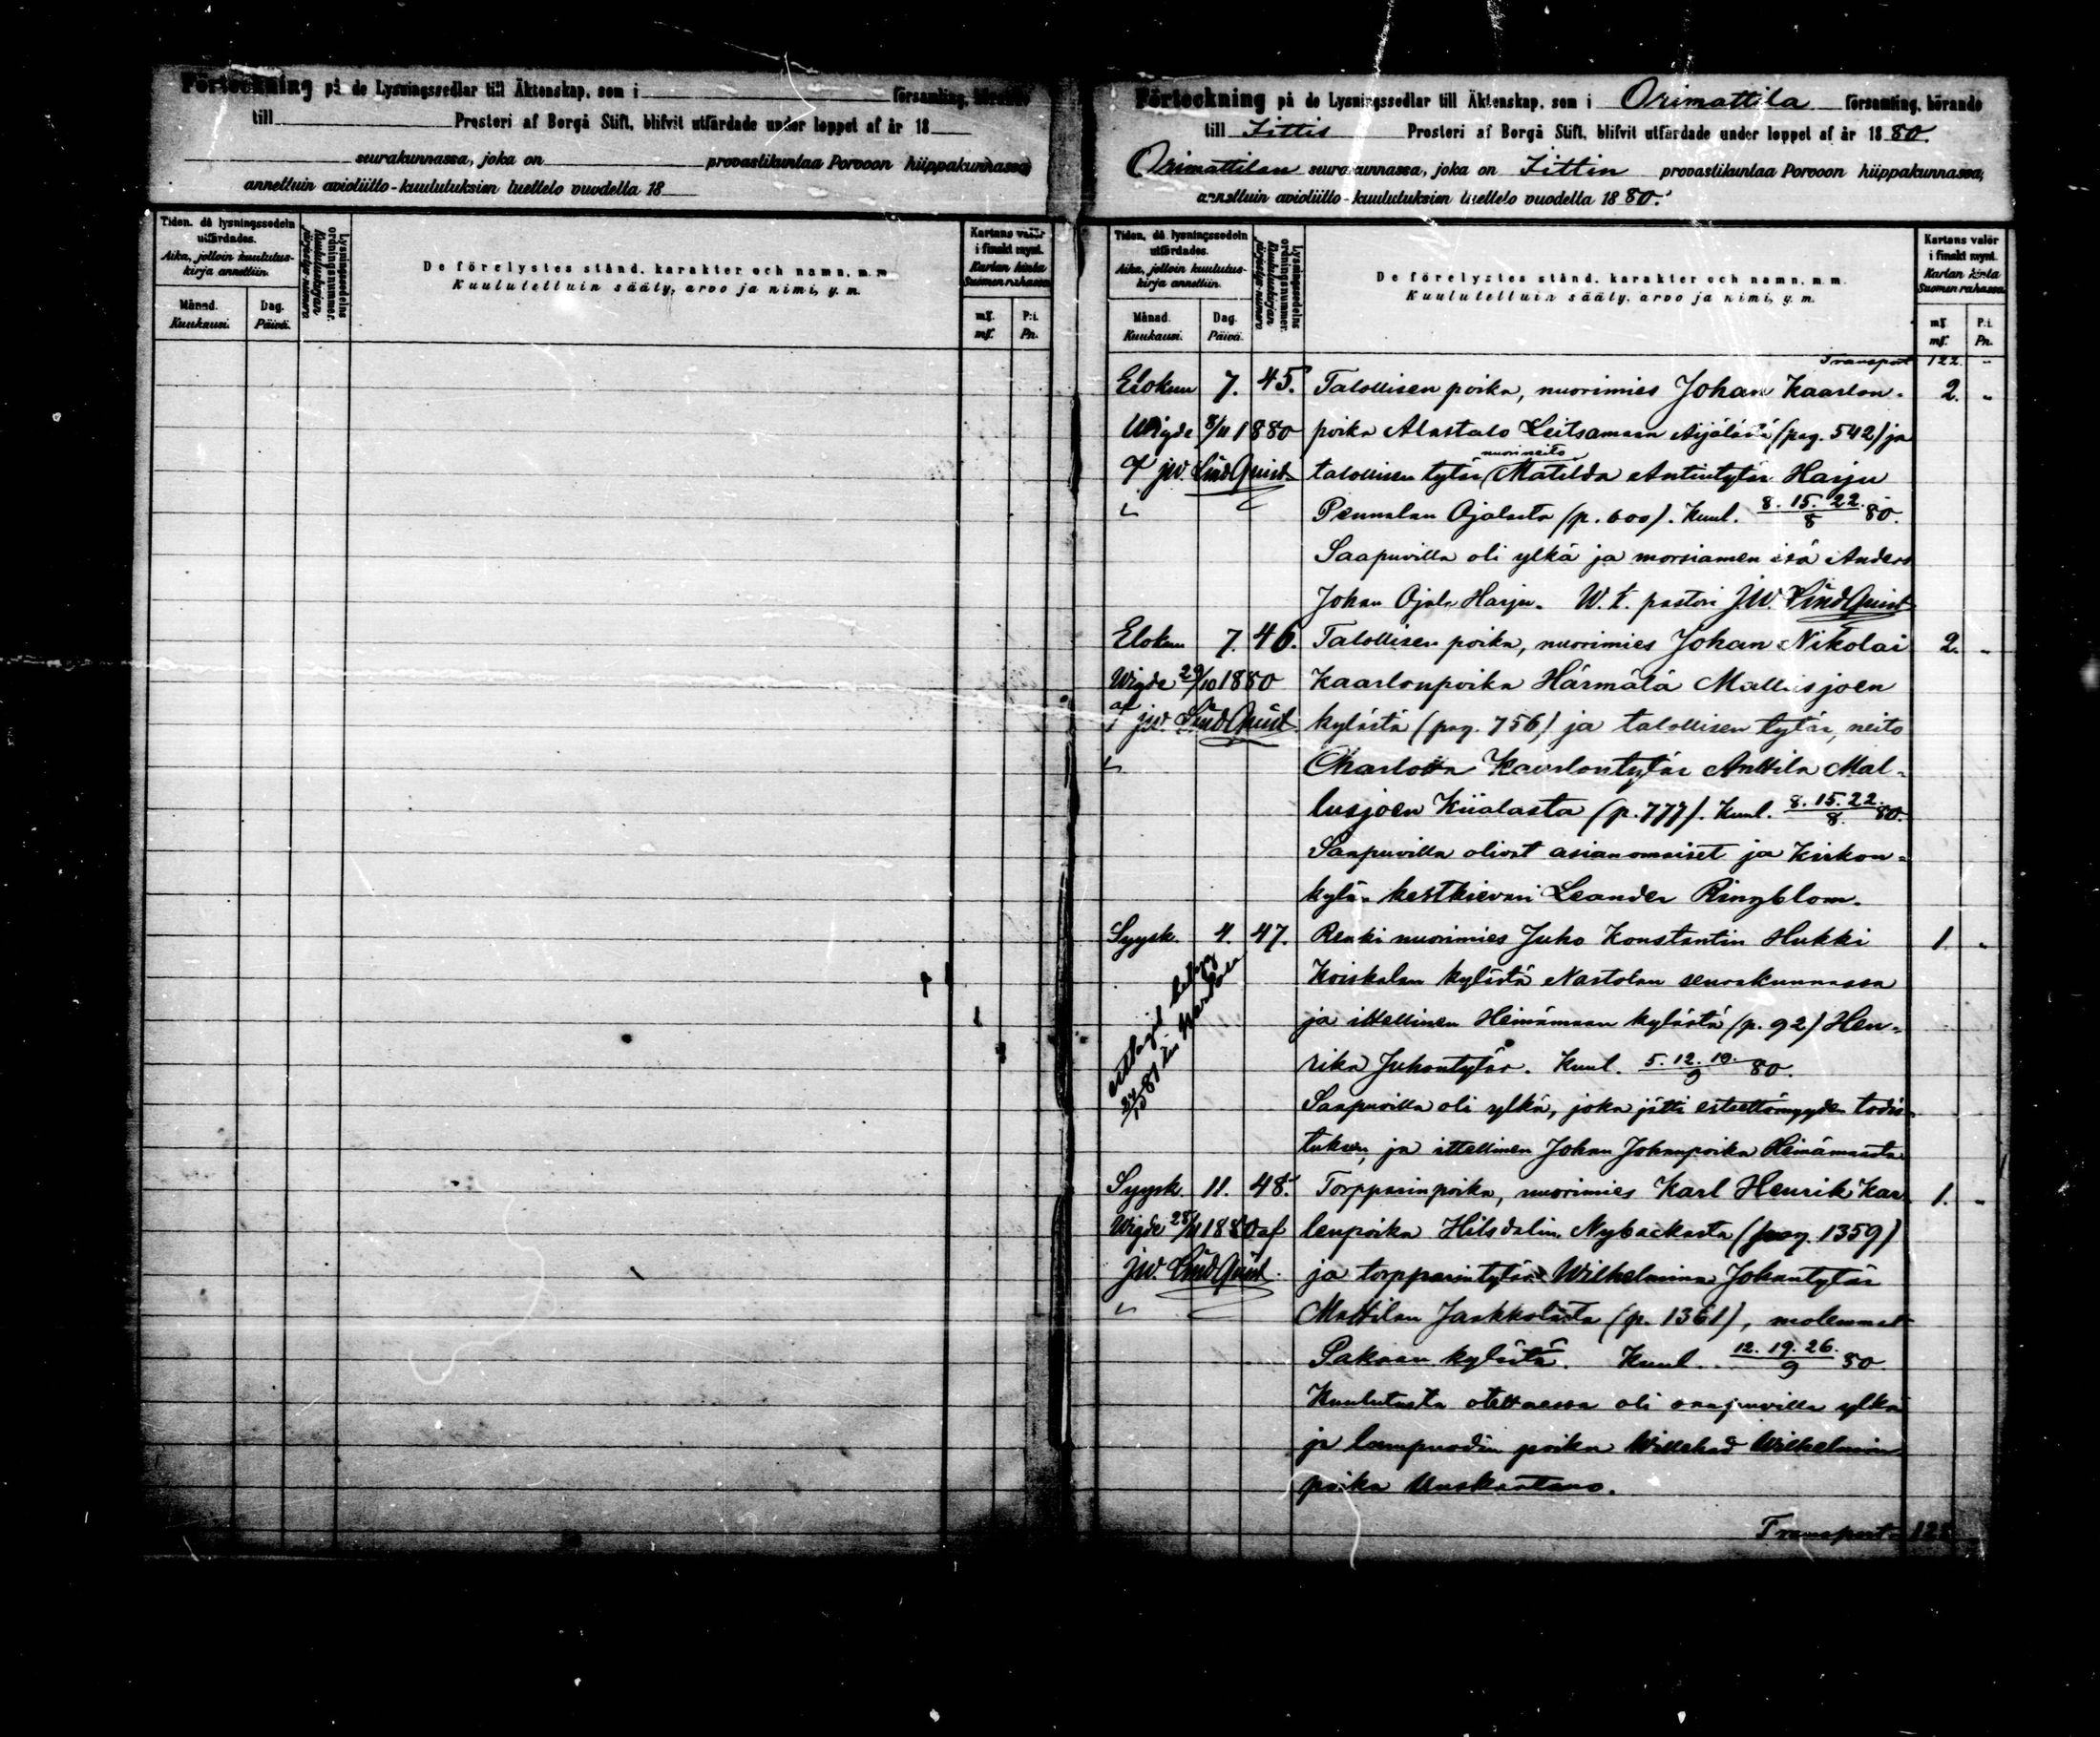 Förteckning på de Lysningssedlar till Äktenskap, som i församling, hörande
till Prosteri af Borgå Stift, blifvit utfärdade under loppet af år 18
seurakunnassa, joka on provastikuntaa Porvoon hiippakunnassa,
annettuin avioliitto-kuulutuksien luettelo vuodella 18
Tiden, då lysningssedeln utfärdades.
Aika, jolloin kuulutus-kirja annettiin.
Månad. Kuukausi.
Dag. Päivä.
Lysningssedelns ordningsnummer.
Kuulutuskirjan järjestys-numero
De förelystes stånd, karakter och namn, m. m.
Kuulutelluin sääty, arvo ja nimi, y. m.
Kartans valör i finskt mynt.
Kartan hinta Suomen rahassa.
mf. P:i.
mf. Pn.
Förteckning på de Lysningssedlar till Äktenskap, som i Orimattila församling, hörande
till Iittis Prosteri af Borgå Stift, blifvit utfärdade under loppet af år 1880.
Orimattilan seurakunnassa, joka on Iittin provastikuntaa Porvoon hiippakunnassa,
annettuin avioliitto-kuulutuksien luettelo vuodella 1880.
Tiden, då lysningssedeln utfärdades.
Aika, jolloin kuulutus-kirja annettiin.
Månad. Kuukausi.
Dag. Päivä.
Lysningssedelns ordningsnummer.
Kuulutuskirjan järjestys-numero
De förelystes stånd, karakter och namn, m. m.
Kuulutelluin sääty, arvo ja nimi, y. m.
Kartans valör i finskt mynt.
Kartan hinta Suomen rahassa.
mf. P:i.
mf. Pn.
Transport 122. "
Elokuu 7. 45. Talollisen poika, nuorimies Johan Kaarlon- 2. "
Wigde 8/11 1880 poika Alastalo Leitsamaan Äijälästä (pag. 542) ja
af J.W. LindQuist talollisen tytär, nuori neito Matilda Antintytär Harju
Pennalan Ojalasta (p. 600). Kuul. 8. 15. 22./8 80.
Saapuvilla oli ylkä ja morsiamen isä Anders
Johan Ojala Harju. W. t. pastori J.W. LindQuist
Elokuu 7. 46. Talollisen poika, nuorimies Johan Nikolai 2. "
Wigde 29/10 1880 Kaarlonpoika Härmälä Mallusjoen
af J.W. LindQuist kylästä (pag. 756) ja talollisen tytär, neito
Charlotta Kaarlontytär Anttila Mal-
lusjoen Kiialasta (p. 777). Kuul. 8. 15. 22./8. 80.
Saapuvilla olivat asianomaiset ja Kirkon-
kylän kestkievari Leander Ringblom.
Syysk. 4. 47. Renki nuorimies Juho Konstantin Hukki 1. "
Koiskalan kylästä Nastolan seurakunnassa
ja ittellinen Heinämaan kylästä (p. 92) Hen-
rika Juhontytär. Kuul. 5. 12. 19./9 80.
Saapuvilla oli ylkä, joka jätti esteettömyyden todis-
tuksen, ja ittellinen Johan Johanpoika Heinämaasta
Syysk. 11. 48. Torpparin poika, nuorimies Karl Henrik Kar- 1. "
Wigde 28/11 1880 af lenpoika Hilsdalin Nybackasta (pag. 1359)
J.W. LindQuist ja torpparin tytär Wilhelmina Johantytär
Mattilan Jaakkolasta (p. 1361), molemmat
Pakaan kylästä. Kuul. 12. 19. 26./9 80.
Kuulutusta otettaessa oli saapuvilla ylkä
ja lampuodin poika Willehad Wilhelmin
poika Uuskartano.
Transport